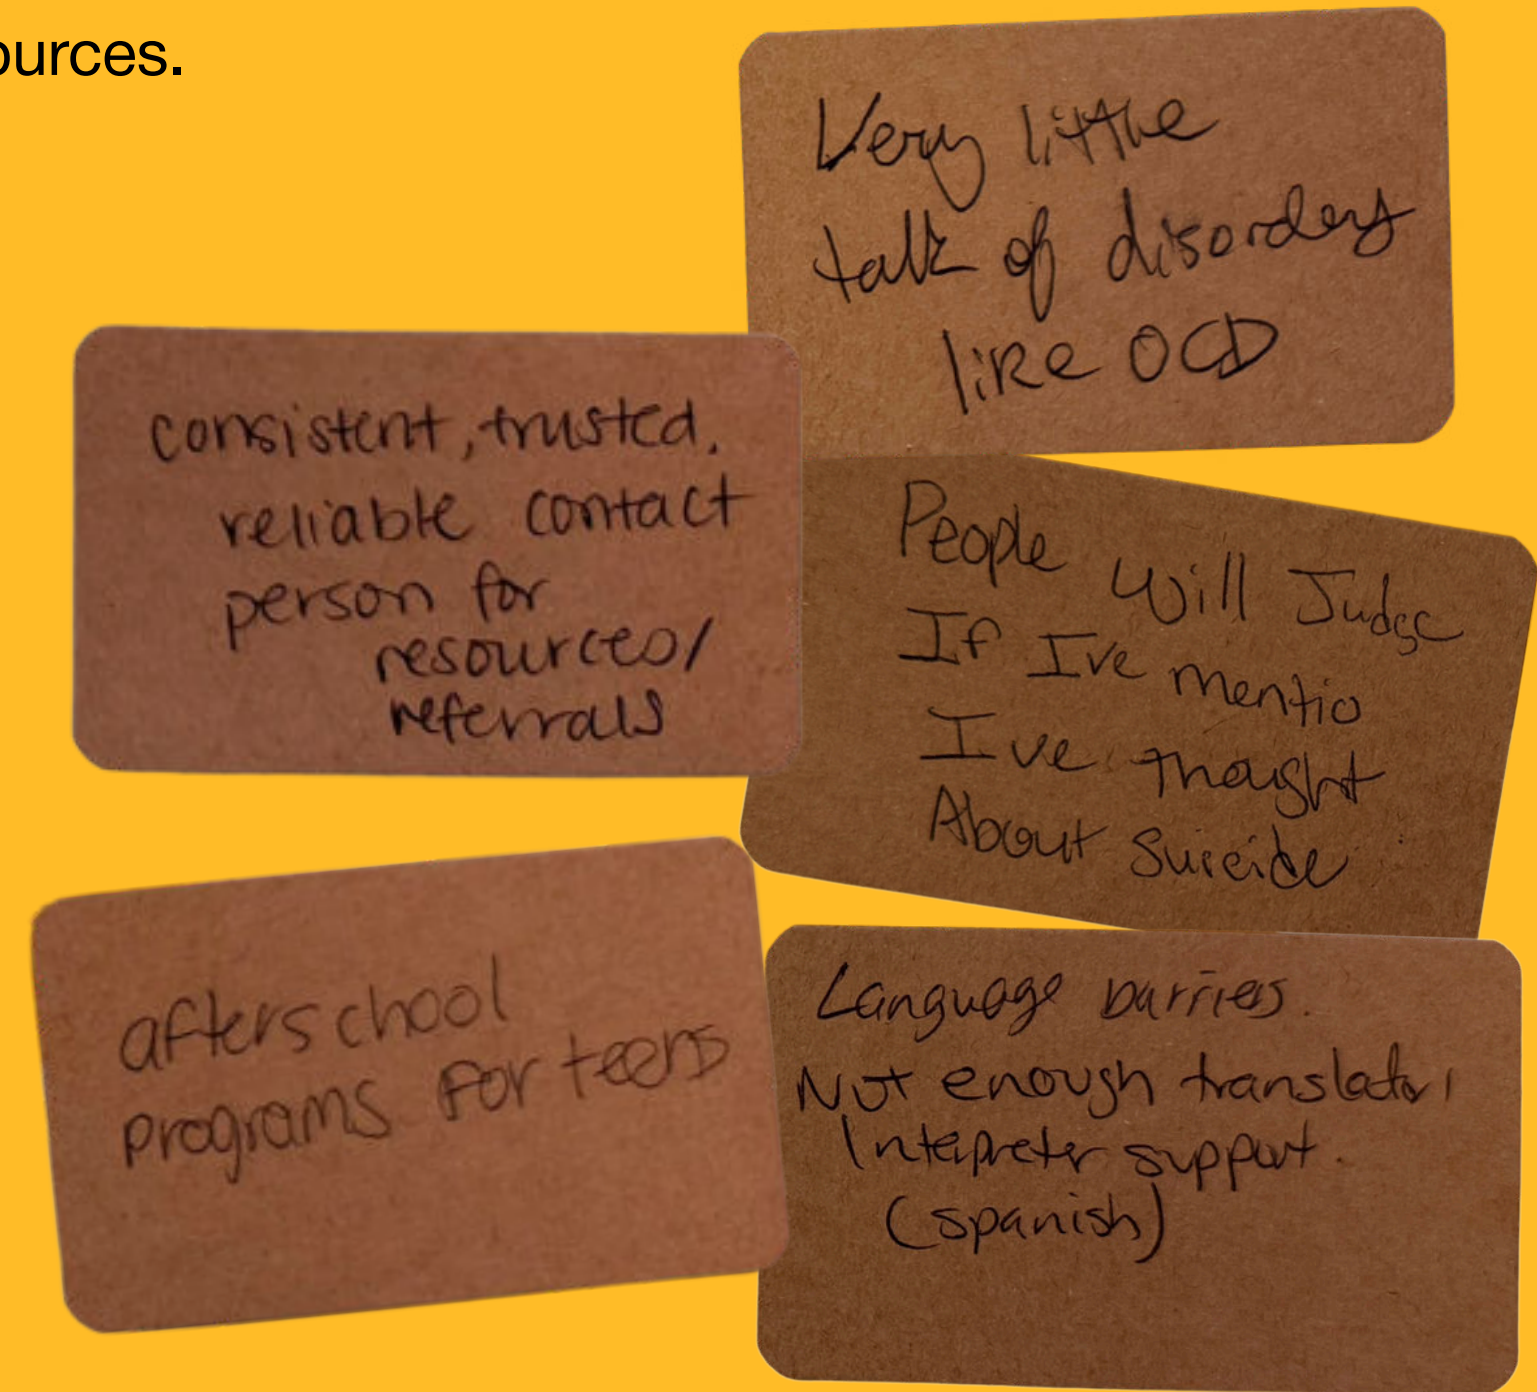 ources.
Very little
talk of disorders
like OCD
consistent, trusted,
reliable contact
person for
resources/
referrals
People Will Judge
If I've mentio
I've thought
About Suicide
afterschool
programs for teens
Language barriers.
Not enough translator/
Interpreter support.
(spanish)